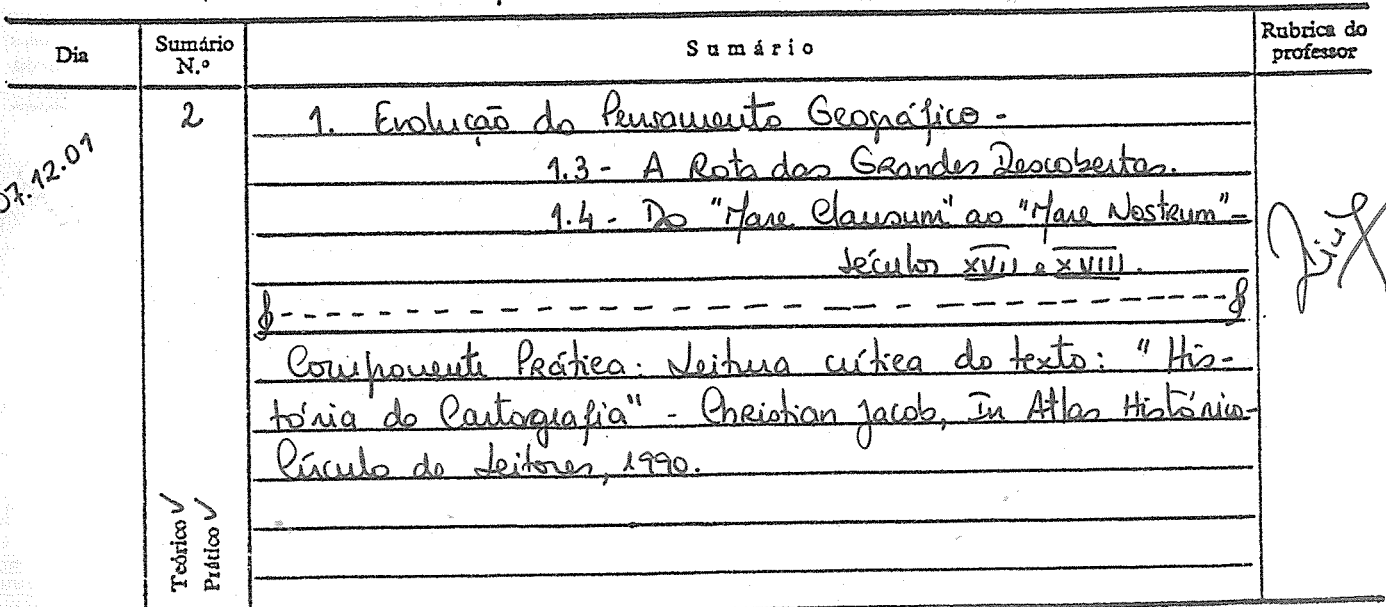 Dia
Sumário N.º
Sumário
Rubrica do professor
07.12.01
2
1. Evolução do Pensamento Geográfico -
1.3 - A Rota das Grandes Descobertas.
1.4 - Do "Mare Clausum" ao "Mare Nostrum" -
séculos XVII e XVIII.
Componente Prática: Leitura crítica do texto: "His-
tória da Cartografia" - Christian Jacob, In Atlas Histórico-
Círculo de Leitores, 1990.
Teórico ✓
Prático ✓